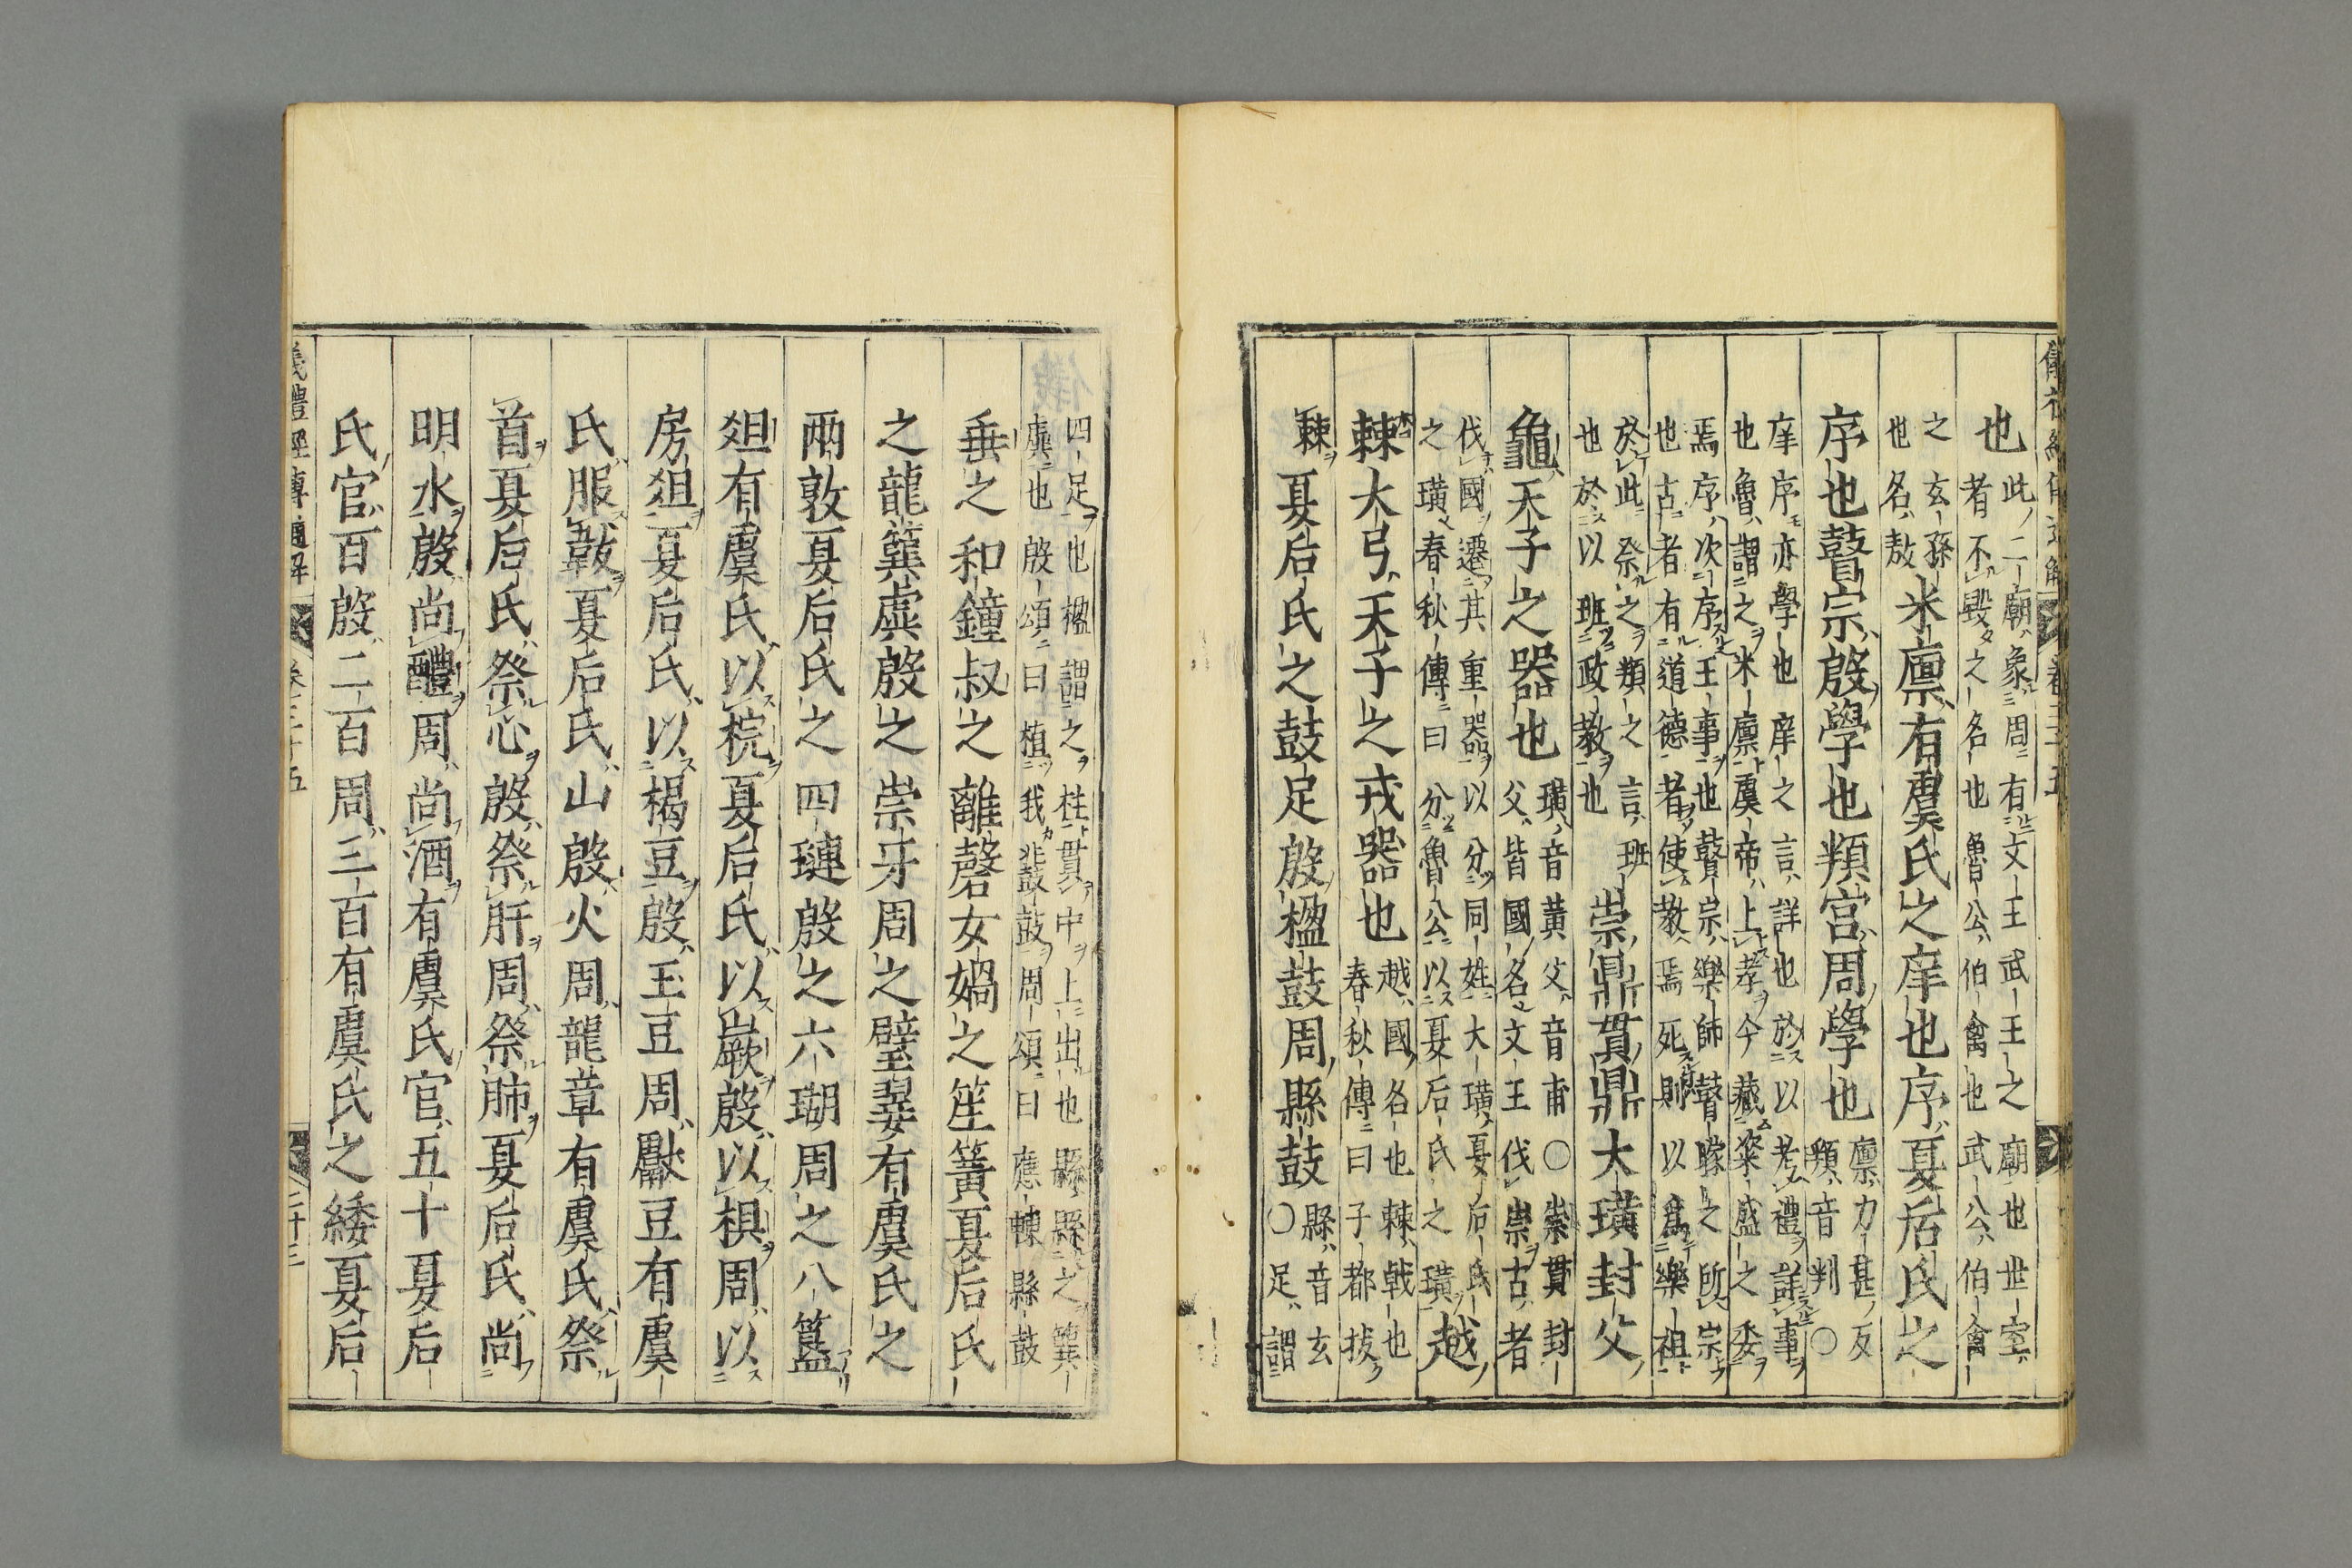 儀禮經傳通解 卷三十五
也此二廟象周有文王武王之廟也世室
者不毀之名也魯公伯禽也武公伯禽
之玄孫
也名敖
米廩有虞氏之庠也序夏后氏之
序也瞽宗殷學也頖宮周學也廩力甚反
頖音判○
庠序亦學也庠之言詳也於以考禮詳事
也魯謂之米廩虞帝上孝今藏粢盛之委
焉序次序王事也瞽宗樂師瞽矇之所宗
也古者有道德者使教焉死則以爲樂祖
於此祭之頖之言班
也於以班政教也
崇鼎貫鼎大璜封父
龜天子之器也璜音黃父音甫○崇貫封
父皆國名文王伐崇古者
伐國遷其重器以分同姓大璜夏后氏
之璜春秋傳曰分魯公以夏后氏之璜
越
棘大弓天子之戎器也越國名也棘戟也
春秋傳曰子都拔
棘夏后氏之鼓足殷楹鼓周縣鼓縣音玄
○足謂
四足也楹謂之柱貫中上出也縣縣之簨
虡也殷頌曰植我鼗鼓周頌曰應朄縣鼓
垂之和鐘叔之離磬女媧之笙簧夏后氏
之龍簨虡殷之崇牙周之璧翣有虞氏之
兩敦夏后氏之四璉殷之六瑚周之八簋
俎有虞氏以梡夏后氏以嶡殷以椇周以
房俎夏后氏以楬豆殷玉豆周獻豆有虞
氏服韍夏后氏山殷火周龍章有虞氏祭
首夏后氏祭心殷祭肝周祭肺夏后氏尚
明水殷尚醴周尚酒有虞氏官五十夏后
氏官百殷二百周三百有虞氏之緌夏后
儀禮經傳通解 卷三十五 二十三